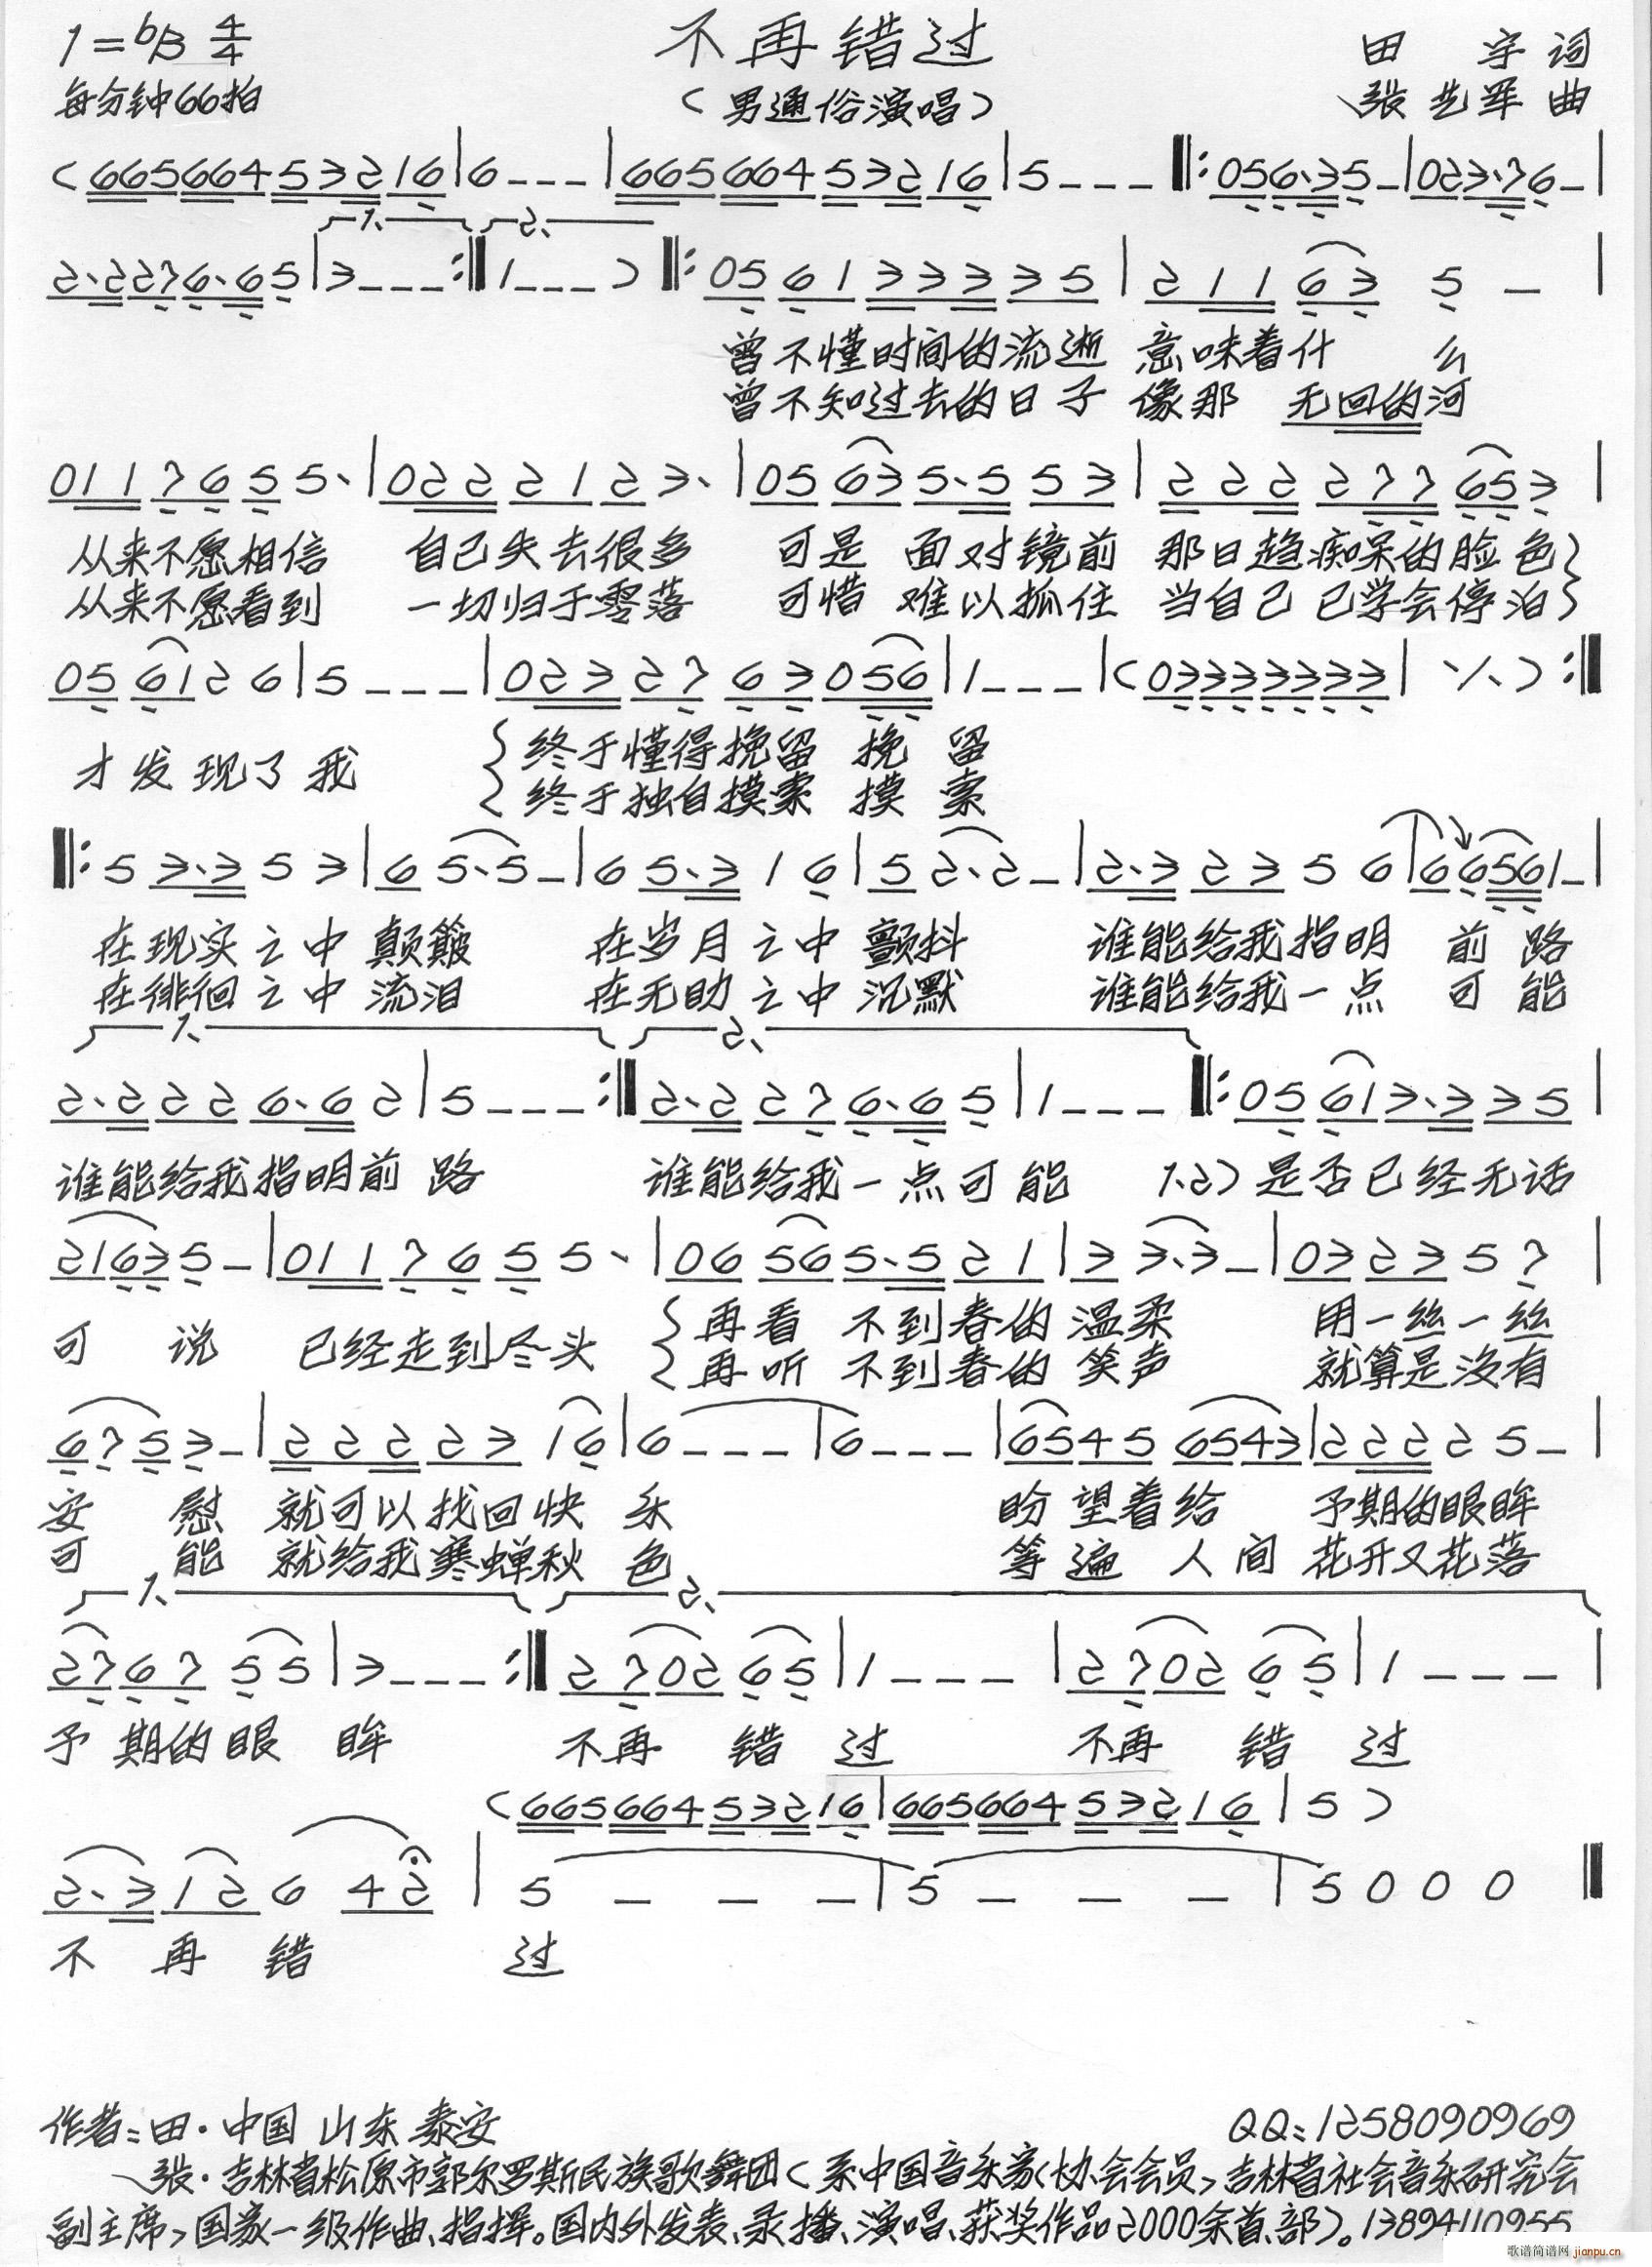 1=bB 4/4 不再错过 田 宇 词
每分钟66拍 (男通俗演唱) 张艺军 曲
(665664532 16|6---|665664532 16|5---‖:056·35-|023·76-|
1、 2、
2·2276·65|3---:‖1---)‖:0561333335|21163 5-|
曾不懂时间的流逝 意味着什 么
曾不知过去的日子 像那 无回的河
0117655·|0222123·|05635·553|222277653|
从来不愿相信 自己失去很多 可是 面对镜前 那日趋痴呆的脸色
从来不愿看到 一切归于零落 可惜 难以抓住 当自己 已学会停泊
056126|5---|0232763056|1---|(03333333|⁒):‖
才发现了我 终于懂得挽留 挽 留
终于独自摸索 摸 索
‖:53·353|65·5-|65·316|52·2-|2·32356|66561-|
在现实之中 颠簸 在岁月之中 颤抖 谁能给我指明 前 路
在徘徊之中 流泪 在无助之中 沉默 谁能给我一点 可 能
1、 2、
2·2226·62|5---:‖2·2276·65|1---‖:05613·335|
谁能给我指明前 路 谁能给我一点可 能 1、2)是否已经无话
21635-|0117655·|06565·521|33·3-|032357|
可 说 已经走到尽头 再看 不到春的 温柔 用一丝一丝
再听 不到春的 笑声 就算是没有
6753-|2222316|6---|6---|65456543|222225-|
安 慰 就可以找回快 乐 盼望着给 予期的眼眸
可 能 就给我寒蝉秋 色 等遍 人间 花开又花落
1、 2、
276755|3---:‖270265|1---|270265|1---|
予 期的眼 眸 不再 错 过 不再 错 过
(665664532 16|665664532 16|5)
2·312642|5---|5---|5000‖
不 再 错 过
作者:田·中国 山东 泰安 QQ:1258090969
张·吉林省松原市郭尔罗斯民族歌舞团(系中国音乐家协会会员,吉林省社会音乐研究会
副主席,国家一级作曲、指挥。国内外发表、录播、演唱、获奖作品2000余首、部)。13894110955
歌谱简谱网
jianpu.cn